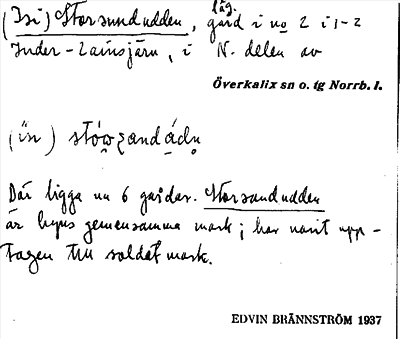 låg.
(Isi) Storsundudden, gård i no 2 i 1-2
Inder-Lainsjärn, i N. delen av
Överkalix sn o. tg Norrb. l.
(ı̇n)
Där ligga nu 6 gårdar. Storsandudden
är byns gemensamma mark; har varit upp-
tagen till soldatmark.
EDVIN BRÄNNSTRÖM 1937